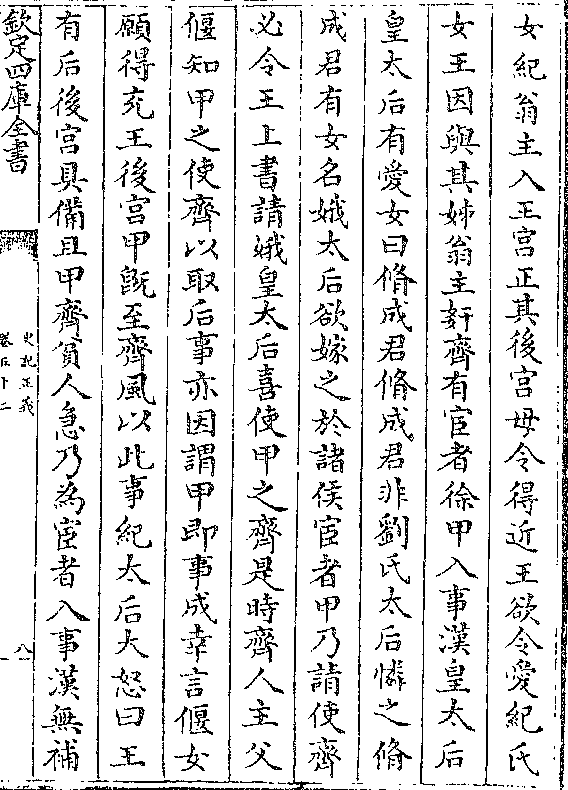 女紀翁主入王宫正其後宫毋令得近王欲令愛紀氏
女王因與其姊翁主姧齊有宦者徐甲入事漢皇太后
皇太后有愛女曰脩成君脩成君非劉氏太后憐之脩
成君有女名娥太后欲嫁之於諸侯宦者甲乃請使齊
必令王上書請娥皇太后喜使甲之齊是時齊人主父
偃知甲之使齊以取后事亦因謂甲即事成幸言偃女
願得充王後宫甲旣至齊風以此事紀太后大怒曰王
有后後宫具備且甲齊貧人急乃為宦者入事漢無補
欽定四庫全書
史記正義
卷五十二
八